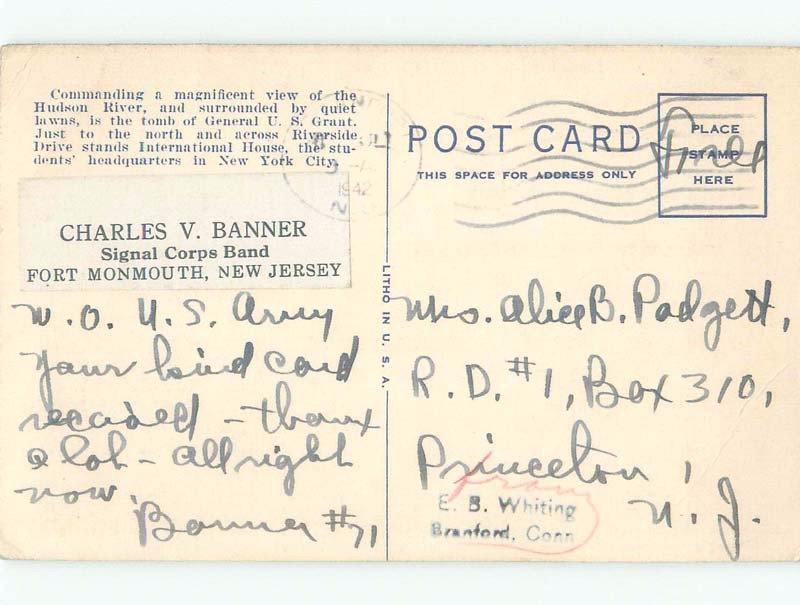 Commanding a magnificent view of the
Hudson River, and surrounded by quiet
lawns, is the tomb of General U. S. Grant.
Just to the north and across Riverside
Drive stands International House, the stu-
dents' headquarters in New York City.
CHARLES V. BANNER
Signal Corps Band
FORT MONMOUTH, NEW JERSEY
W. O. U. S. Army
Your kind card
received - thanx
a lot - all right
now.
Banner #71
LITHO IN U. S. A.
1942
POST CARD
THIS SPACE FOR ADDRESS ONLY
PLACE
STAMP
HERE
Free
Mrs. Alice B. Padgett,
R. D. #1, Box 310,
Princeton,
N. J.
from
E. B. Whiting
Branford, Conn